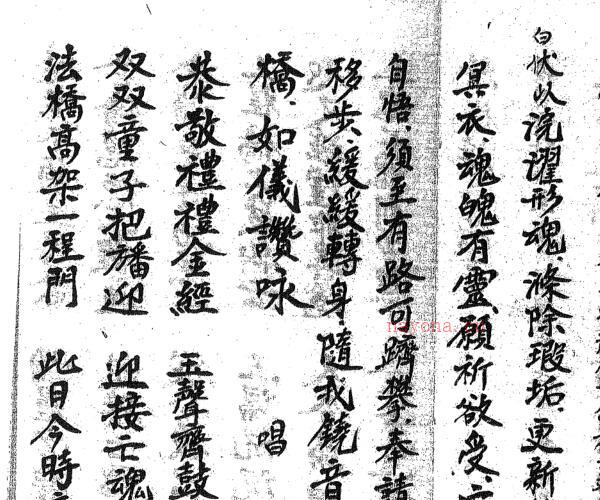 白伏以浣濯形魂、滌除瑕垢、更新
冥衣、魂魄有靈、願祈欲受、
自悟、須至有路可躋攀、奉請
移步、緩緩轉身、隨我鐃音
橋、如儀讚咏 唱
恭敬禮禮金經 玉聲齊鼓
双双童子把旛迎 迎接亡魂
法橋高架一程門 此日今時
nayona.cn